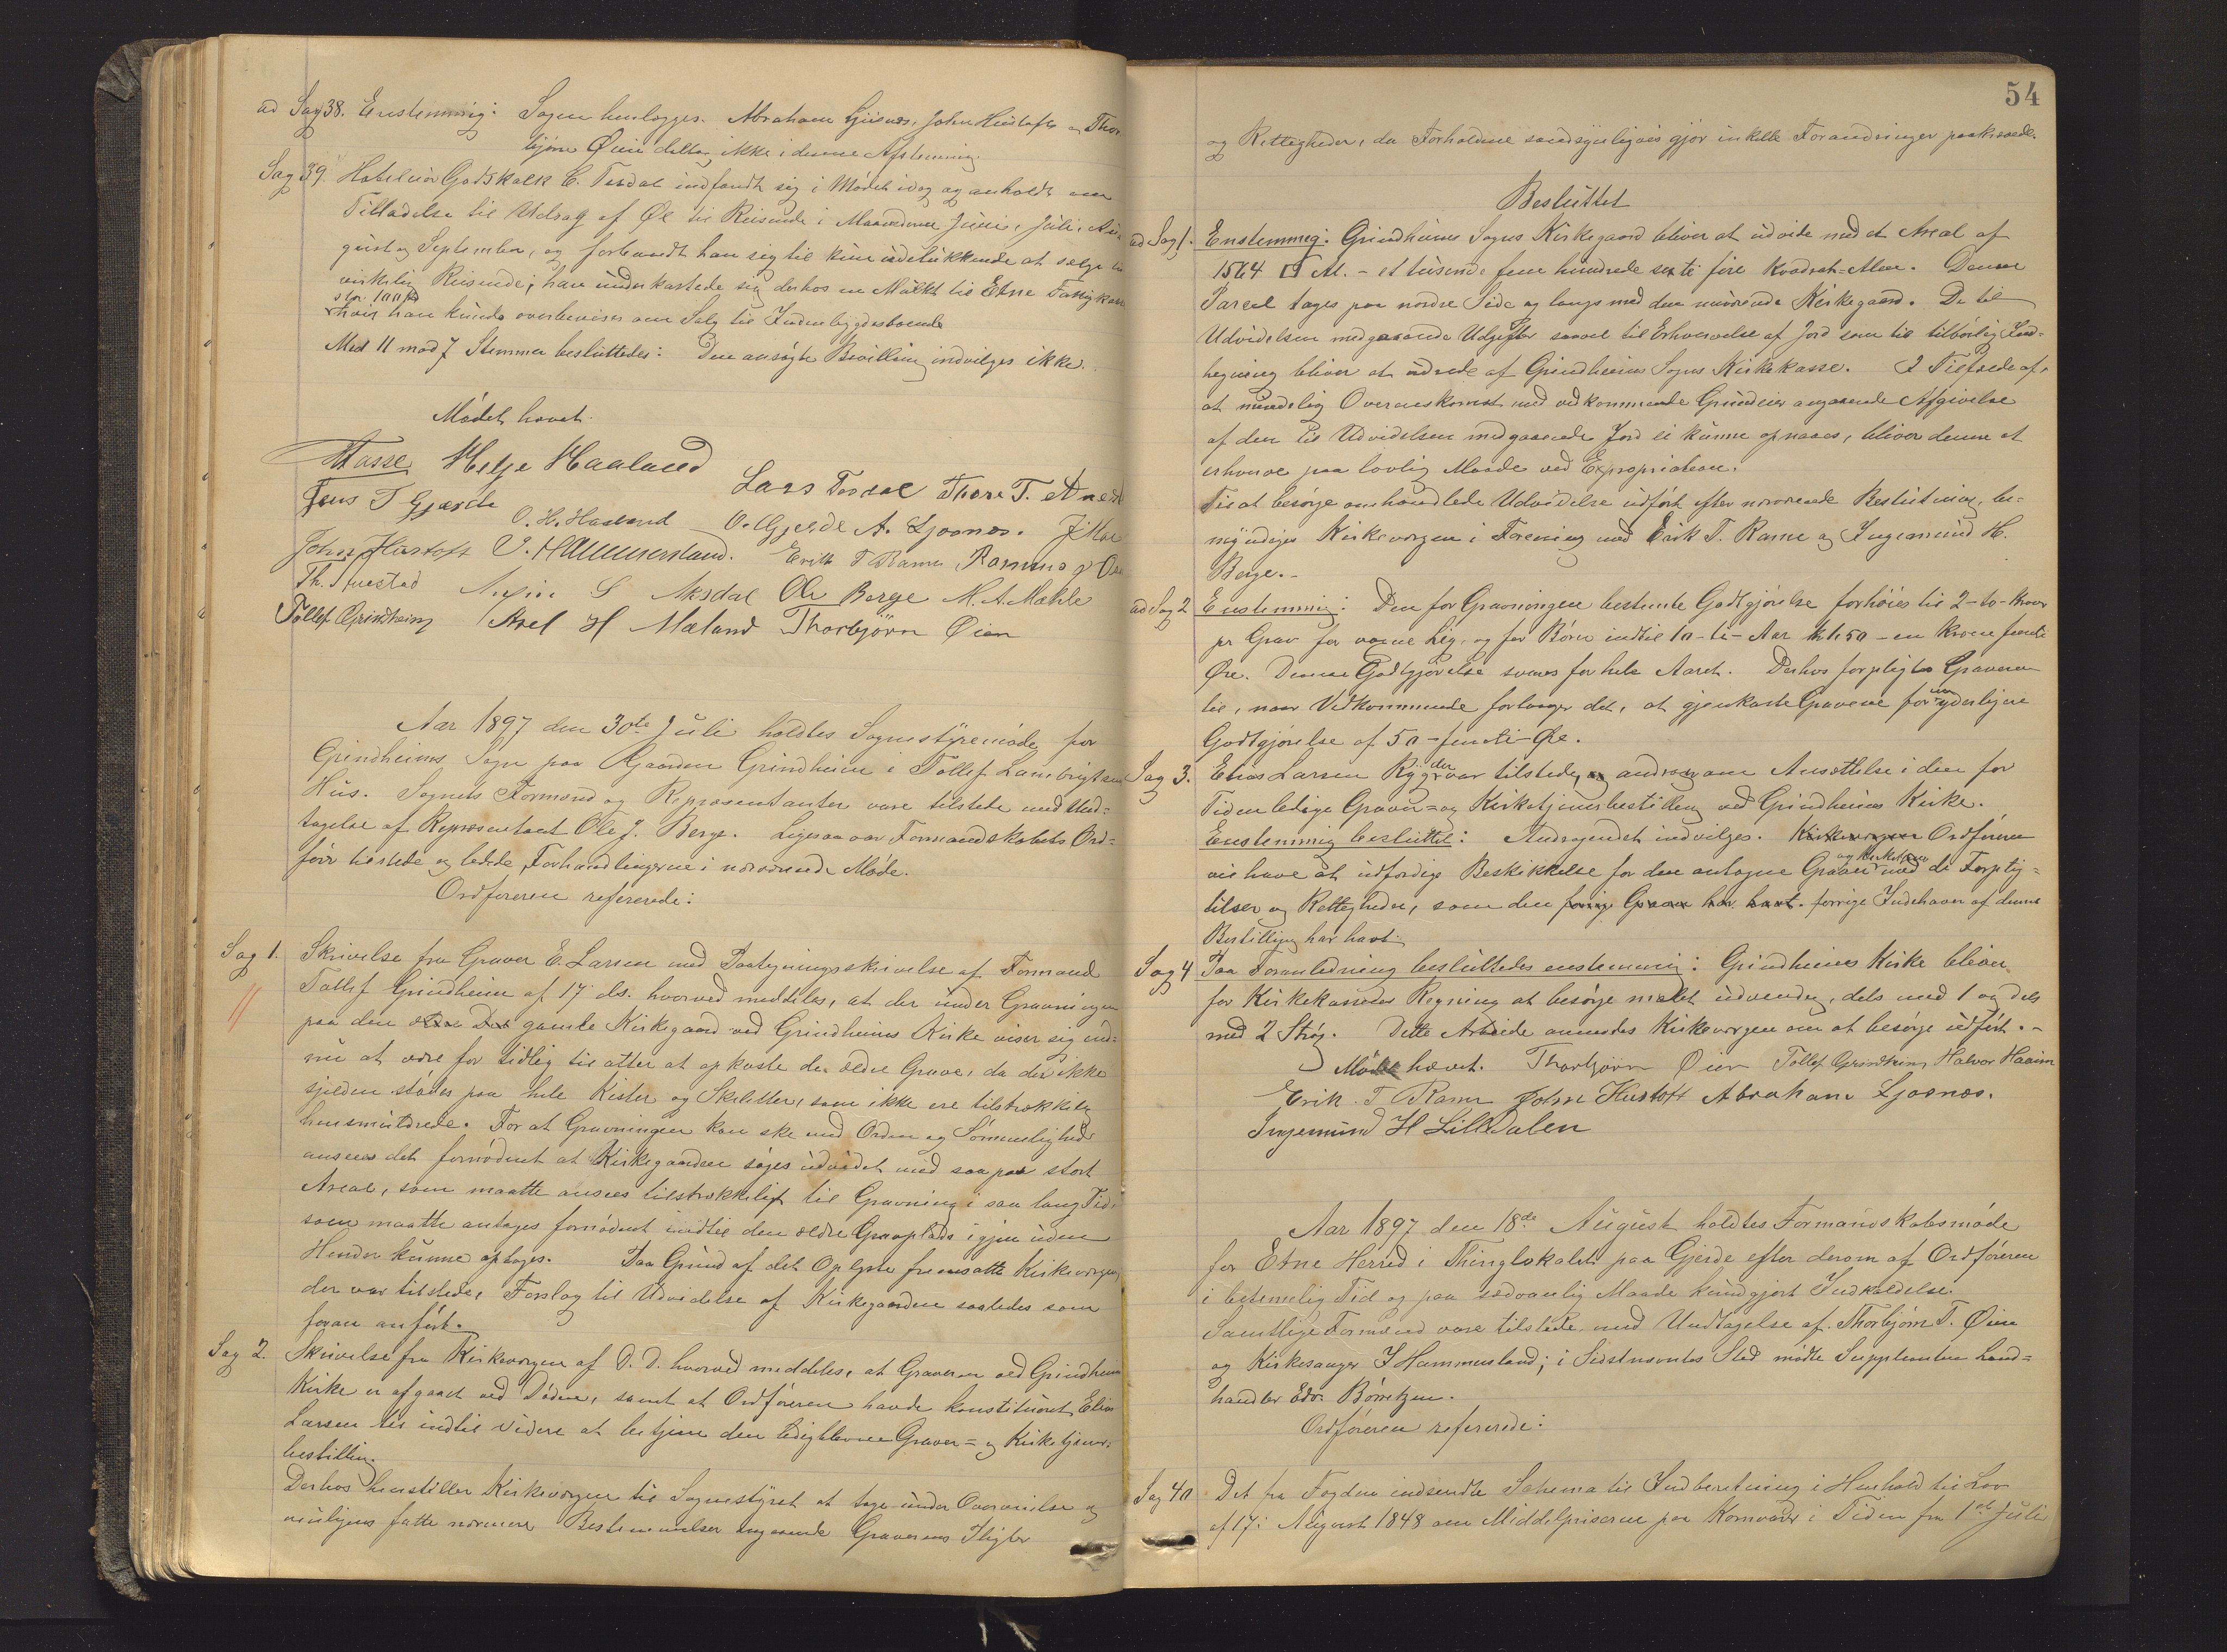 ad Sag 38. Enstemmig: Sagen henlægges. Abraham Ljosnæs, John Hustoft og Thor-
bjørn Øien deltog ikke i denne Afstemning.
Sag 39. Hoteleier Godskalk C. Tesdal indfandt sig i Mødet idag og anholdt om
Tilladelse til Udsalg af Øl til Reisende i Maanederne Juni, Juli, Au-
gust og September, og forbandt han sig til kun udelukkende at sælge til
virkelig Reisende; han underkastede sig derhos en Mulkt til Etne Fattigkasse
stor 100 Kr
hvis han kunde overbevises om Salg til Indenbygdsboende
Med 11 mod 7 Stemmer besluttedes: Den ansøgte Bevilling indvilges ikke.
Mødet hævet.
Helje Haaland
Jens T Gjærde Lars Tesdal Thore T.
O. H. Haaland O. Gjerde A. Ljosnæs.
John Hustoft J. Hammersland. Erik T Ramn Rasmus
Th. S Aksdal Ole Berge M. A. Mæhle
Tollef Grindheim Axel H Mæland Thorbjørn Øien
Aar 1897 den 30te Juli holdtes Sognestyremøde for
Grindheims Sogn paa Gaarden Grindheim i Tollef Lambrigtsens
Hus. Sognets Formænd og Repræsentanter vare tilstede med Und-
tagelse af Repræsentant Ole J. Berge. Ligesaa var Formandskabets Ord-
fører tilstede og ledede Forhandlingerne i nærværende Møde.
Ordføreren refererede:
Sag 1. Skrivelse fra Graver E. Larsen med Paategningsskrivelse af Formand
Tollef Grindheim af 17 ds. hvorved meddeles, at der under Gravningen
paa den gamle Kirkegaard ved Grindheims Kirke viser sig end-
nu at være for tidlig til atter at opkaste de ældre Grave, da der ikke
sjelden stødes paa hele Kister og Skeletter, som ikke ere tilstrækkelig
hensmuldrede. For at Gravningen kan ske med Orden og Sømmelighed
ansees det fornødent at Kirkegaarden søges udvidet med saa pas stort
Areal, som maatte ansees tilstrækkeligt til Gravning i saa lang Tid,
som maatte antages fornødent indtil den ældre Gravplads igjen uden
Hinder kunne optages. Paa Grund af det Oplyste fremsatte Kirkeværgen,
der var tilstede, Forslag til Udvidelse af Kirkegaarden saaledes som
foran anført.
Sag 2. Skrivelse fra Kirkeværgen af D. D. hvorved meddeles, at Graveren ved Grindheim
Kirke er afgaaet ved Døden, samt at Ordføreren havde konstitueret Elias
Larsen til indtil Videre at betjene den ledigblevne Graver- og Kirketjener-
bestilling.
Derhos henstiller Kirkeværgen til Sognestyret at tage under Overveielse og
muligens fatte nærmere Bestemmelser angaaende Graverens Pligter
54
og Rettigheder, da Forholdene sandsynligvis gjør enkelte Forandringer paakrævede.
Besluttet
ad Sag 1. Enstemmig: Grindheims Sogns Kirkegaard bliver at udvide med et Areal af
1564 □ Al. - et tusende fem hundrede sexti fire Kvadrat-Alen. Denne
Parcel tages paa nordre Side og langs med den nuværende Kirkegaard. De til
Udvidelsen medgaaende Udgifter saavel til Erhvervelse af Jord som til tilbørlig Ind-
hegning bliver at udrede af Grindheims Sogns Kirkekasse. I Tilfælde af,
at mindelig Overenskomst med vedkommende Grundeier angaaende Afgivelse
af den til Udvidelsen medgaaende Jord ei kunne opnaaes, bliver denne at
erhverve paa lovlig Maade ved Expropriation.
Til at besørge omhandlede Udvidelse udført efter nærværende Beslutning, be-
myndiges Kirkeværgen i Forening med Erik T. Ramn og Ingemund H.
Berge. -
ad Sag 2 Enstemmig: Den for Gravningen bestemte Godtgjørelse forhøies til 2 - to - Kroner
pr Grav for voxne Lig, og for Børn indtil 10 - ti - Aar Kr. 1.50 - en Krone femti
Øre. Denne Godtgjørelse svares for hele Aaret. Derhos forpligtes Graveren
til, naar Vedkommende forlanger det, at gjenkaste Gravene for en yderligere
Godtgjørelse af 50 - femti - Øre.
Sag 3. Elias Larsen Rygg der var tilstede, androg om Ansættelse i den for
Tiden ledige Graver- og Kirketjenerbestilling ved Grindheims Kirke.
Enstemmig besluttet: Andragendet indvilges. Kirkeværgen Ordføreren
vil have at udfærdige Beskikkelse for den antagne Graver og Kirketjener med de Forplig-
telser og Rettigheder, som den forrige Graver har havt. forrige Indehaver af denne
Bestilling har havt.
Sag 4 Paa Foranledning besluttedes enstemmig: Grindheims Kirke bliver
for Kirkekassens Regning at besørge malet udvendig, dels med 1 og dels
med 2 Strøg. Dette Arbeide anmodes Kirkeværgen om at besørge udført. -
Mødet hævet. Thorbjørn Øien Tollef Grindheim Halvor Haaim
Erik T Ramn John Hustoft Abraham Ljosnæs.
Ingemund H LillDalen
Aar 1897 den 18de August holdtes Formandskabsmøde
for Etne Herred i Thinglokalet paa Gjerde efter derom af Ordføreren
i betimelig Tid og paa sædvanlig Maade kundgjort Indkaldelse.
Samtlige Formænd vare tilstede med Undtagelse af Thorbjørn T. Øien
og Kirkesanger J Hammersland; i Sidstnævntes Sted mødte Suppleanten Land-
handler Edv. Børretzen.
Ordføreren refererede:
Sag 40 Det fra Fogden indsendte Schema til Indberetning i Henhold til Lov
af 17: August 1848 om Middelpriserne paa Kornvarer i Tiden fra 1ste Juli